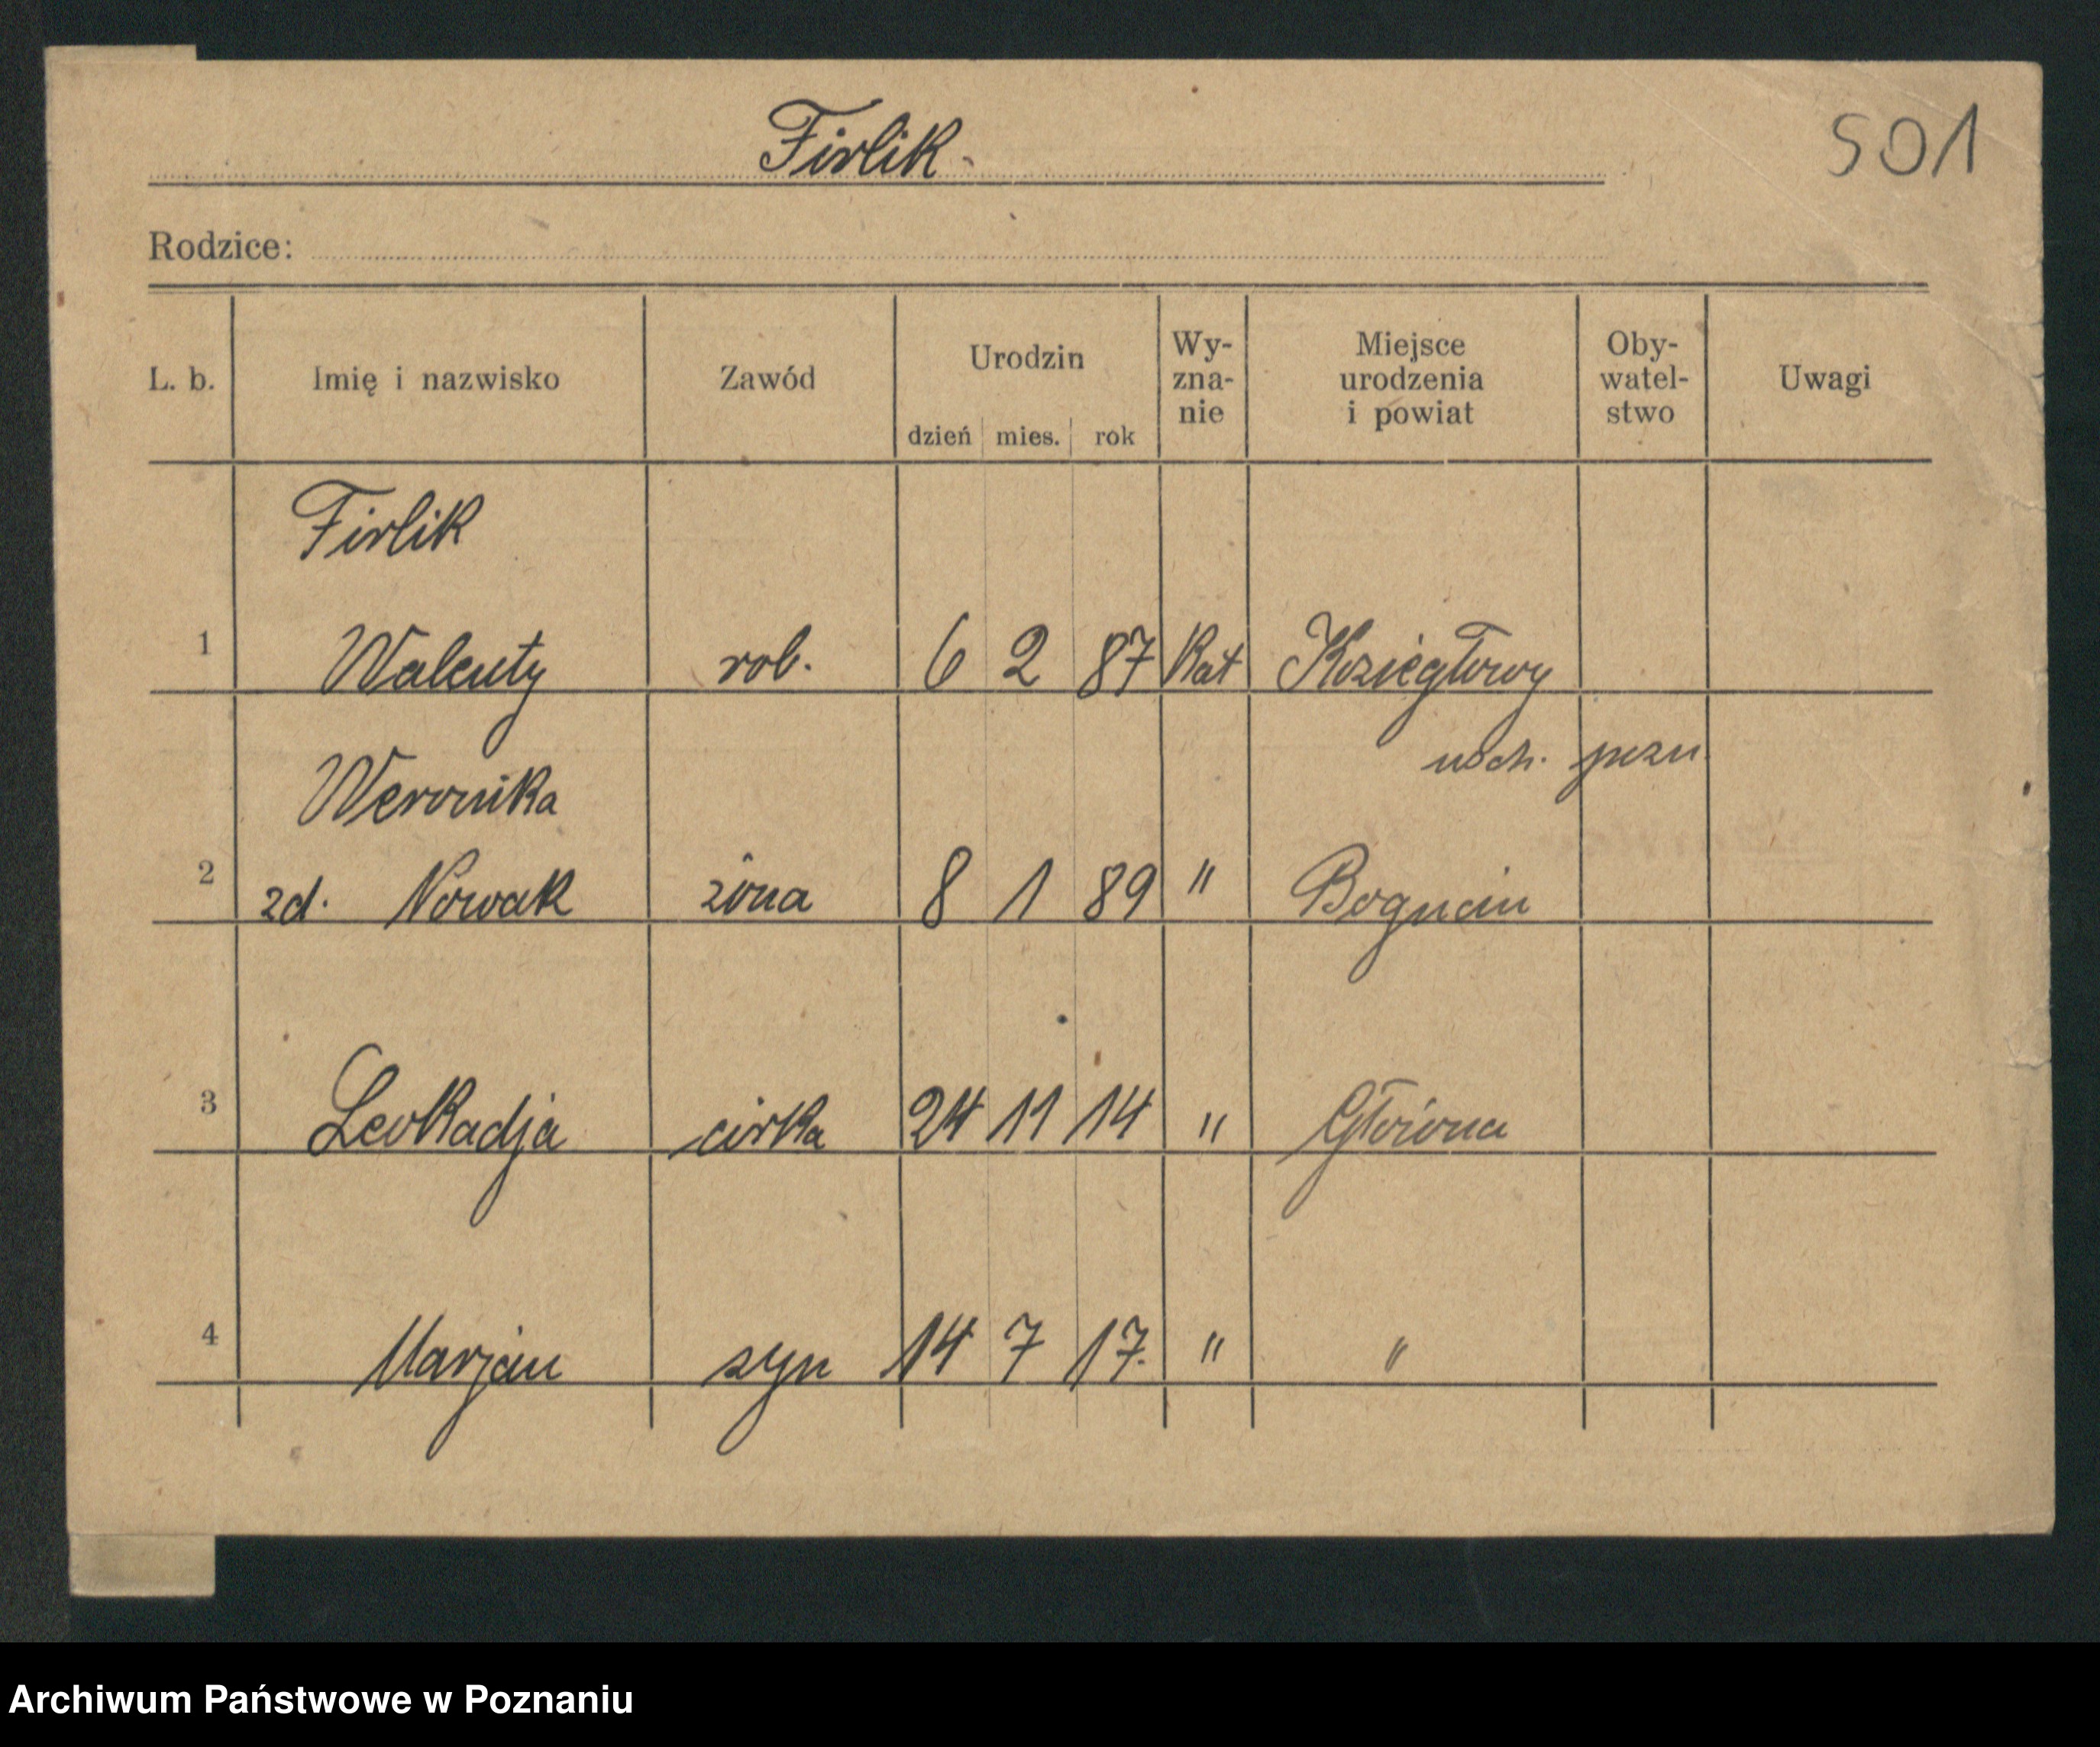 Firlik
501
Rodzice:
L. b. Imię i nazwisko Zawód Urodzin dzień mies. rok Wy-zna-nie Miejsce urodzenia i powiat Oby-watel-stwo Uwagi
Firlik
1 Walenty rob. 6 2 87 Kat Koziegłowy
wsch. pozn.
Weronika
2 zd. Nowak żona 8 1 89 " Bogucin
3 Leokadja córka 24 11 14 " Główna
4 Marjan syn 14 7 17. " "
Archiwum Państwowe w Poznaniu